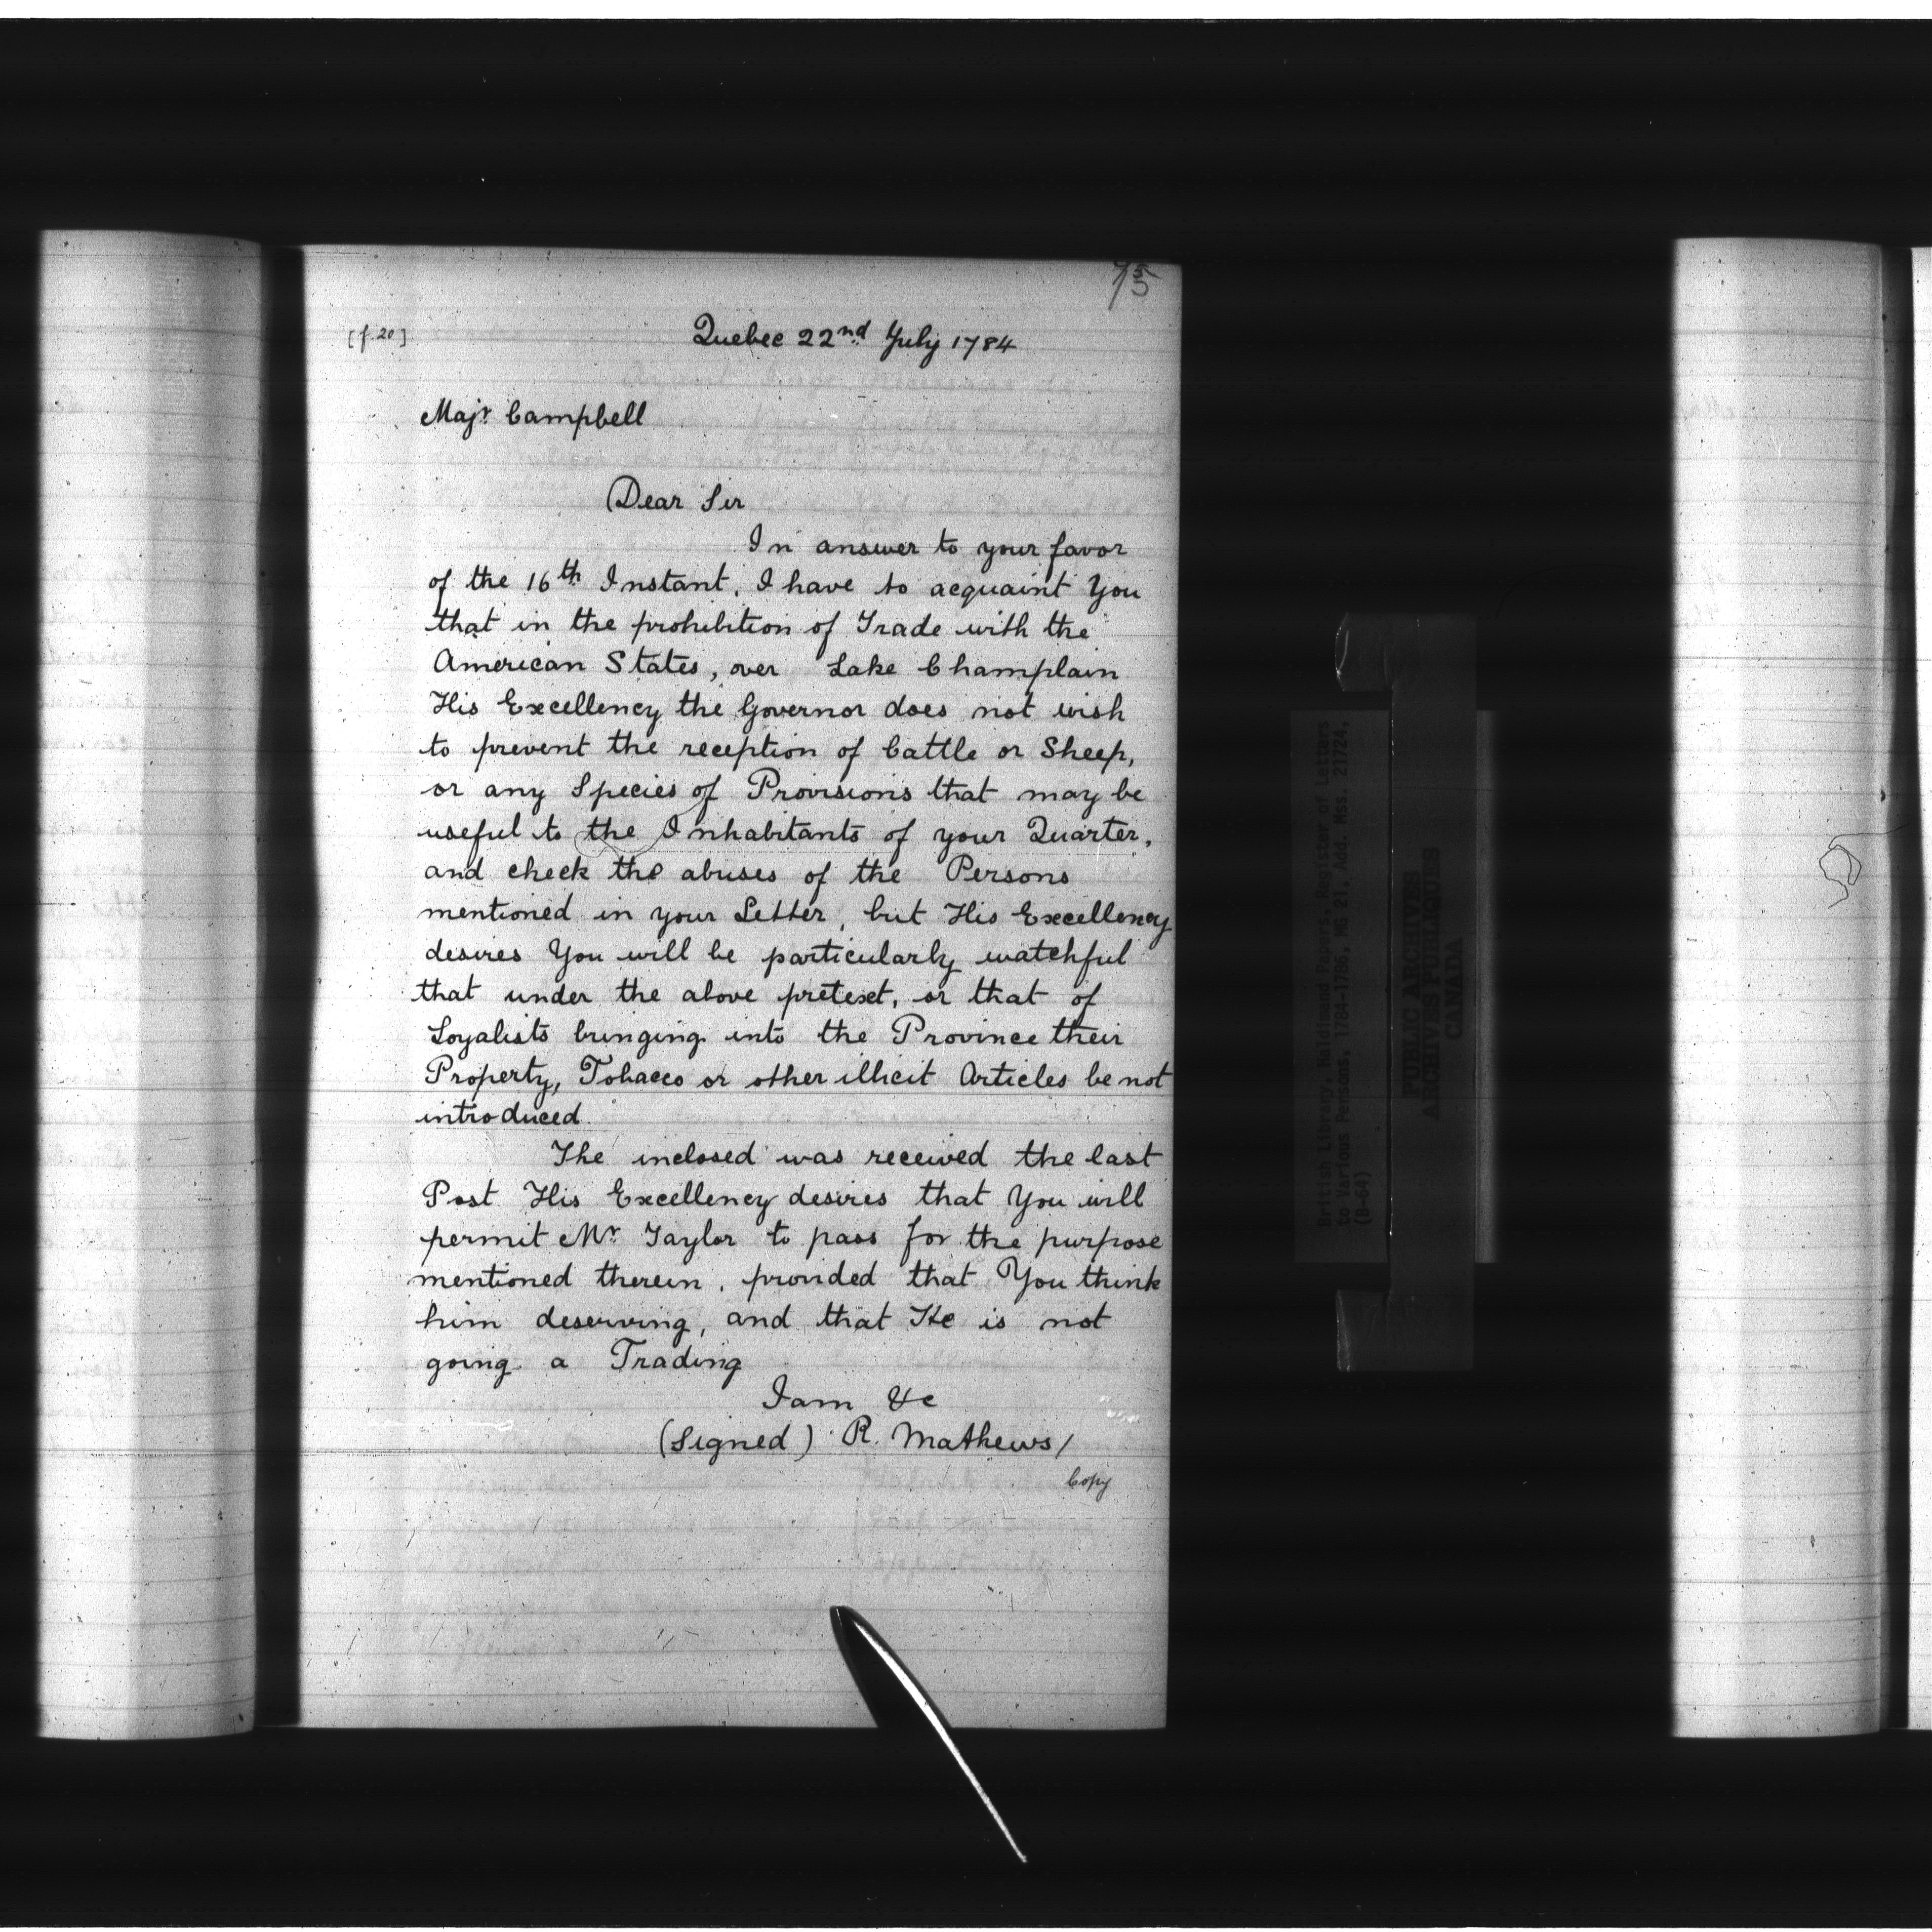 75
[f.20]
Quebec 22nd July 1784
Majr Campbell
Dear Sir
In answer to your favor
of the 16th Instant, I have to acquaint You
that in the prohibition of Trade with the
American States, over Lake Champlain
His Excellency the Governor does not wish
to prevent the reception of Cattle or Sheep,
or any Species of Provisions that may be
useful to the Inhabitants of your Quarter,
and check the abuses of the Persons
mentioned in your Letter, but His Excellency
desires You will be particularly watchful
that under the above pretext, or that of
Loyalists bringing into the Province their
Property, Tobacco or other illicit Articles be not
introduced.
The inclosed was received the last
Post His Excellency desires that You will
permit Mr Taylor to pass for the purpose
mentioned therein, provided that You think
him deserving, and that He is not
going a Trading
I am &c
(Signed) R. Mathews/
Copy
British Library. Haldimand Papers. Register of Letters
to Various Persons, 1784-1786, MG 21, Add. Mss. 21724,
(B-64)
PUBLIC ARCHIVES
ARCHIVES PUBLIQUES
CANADA